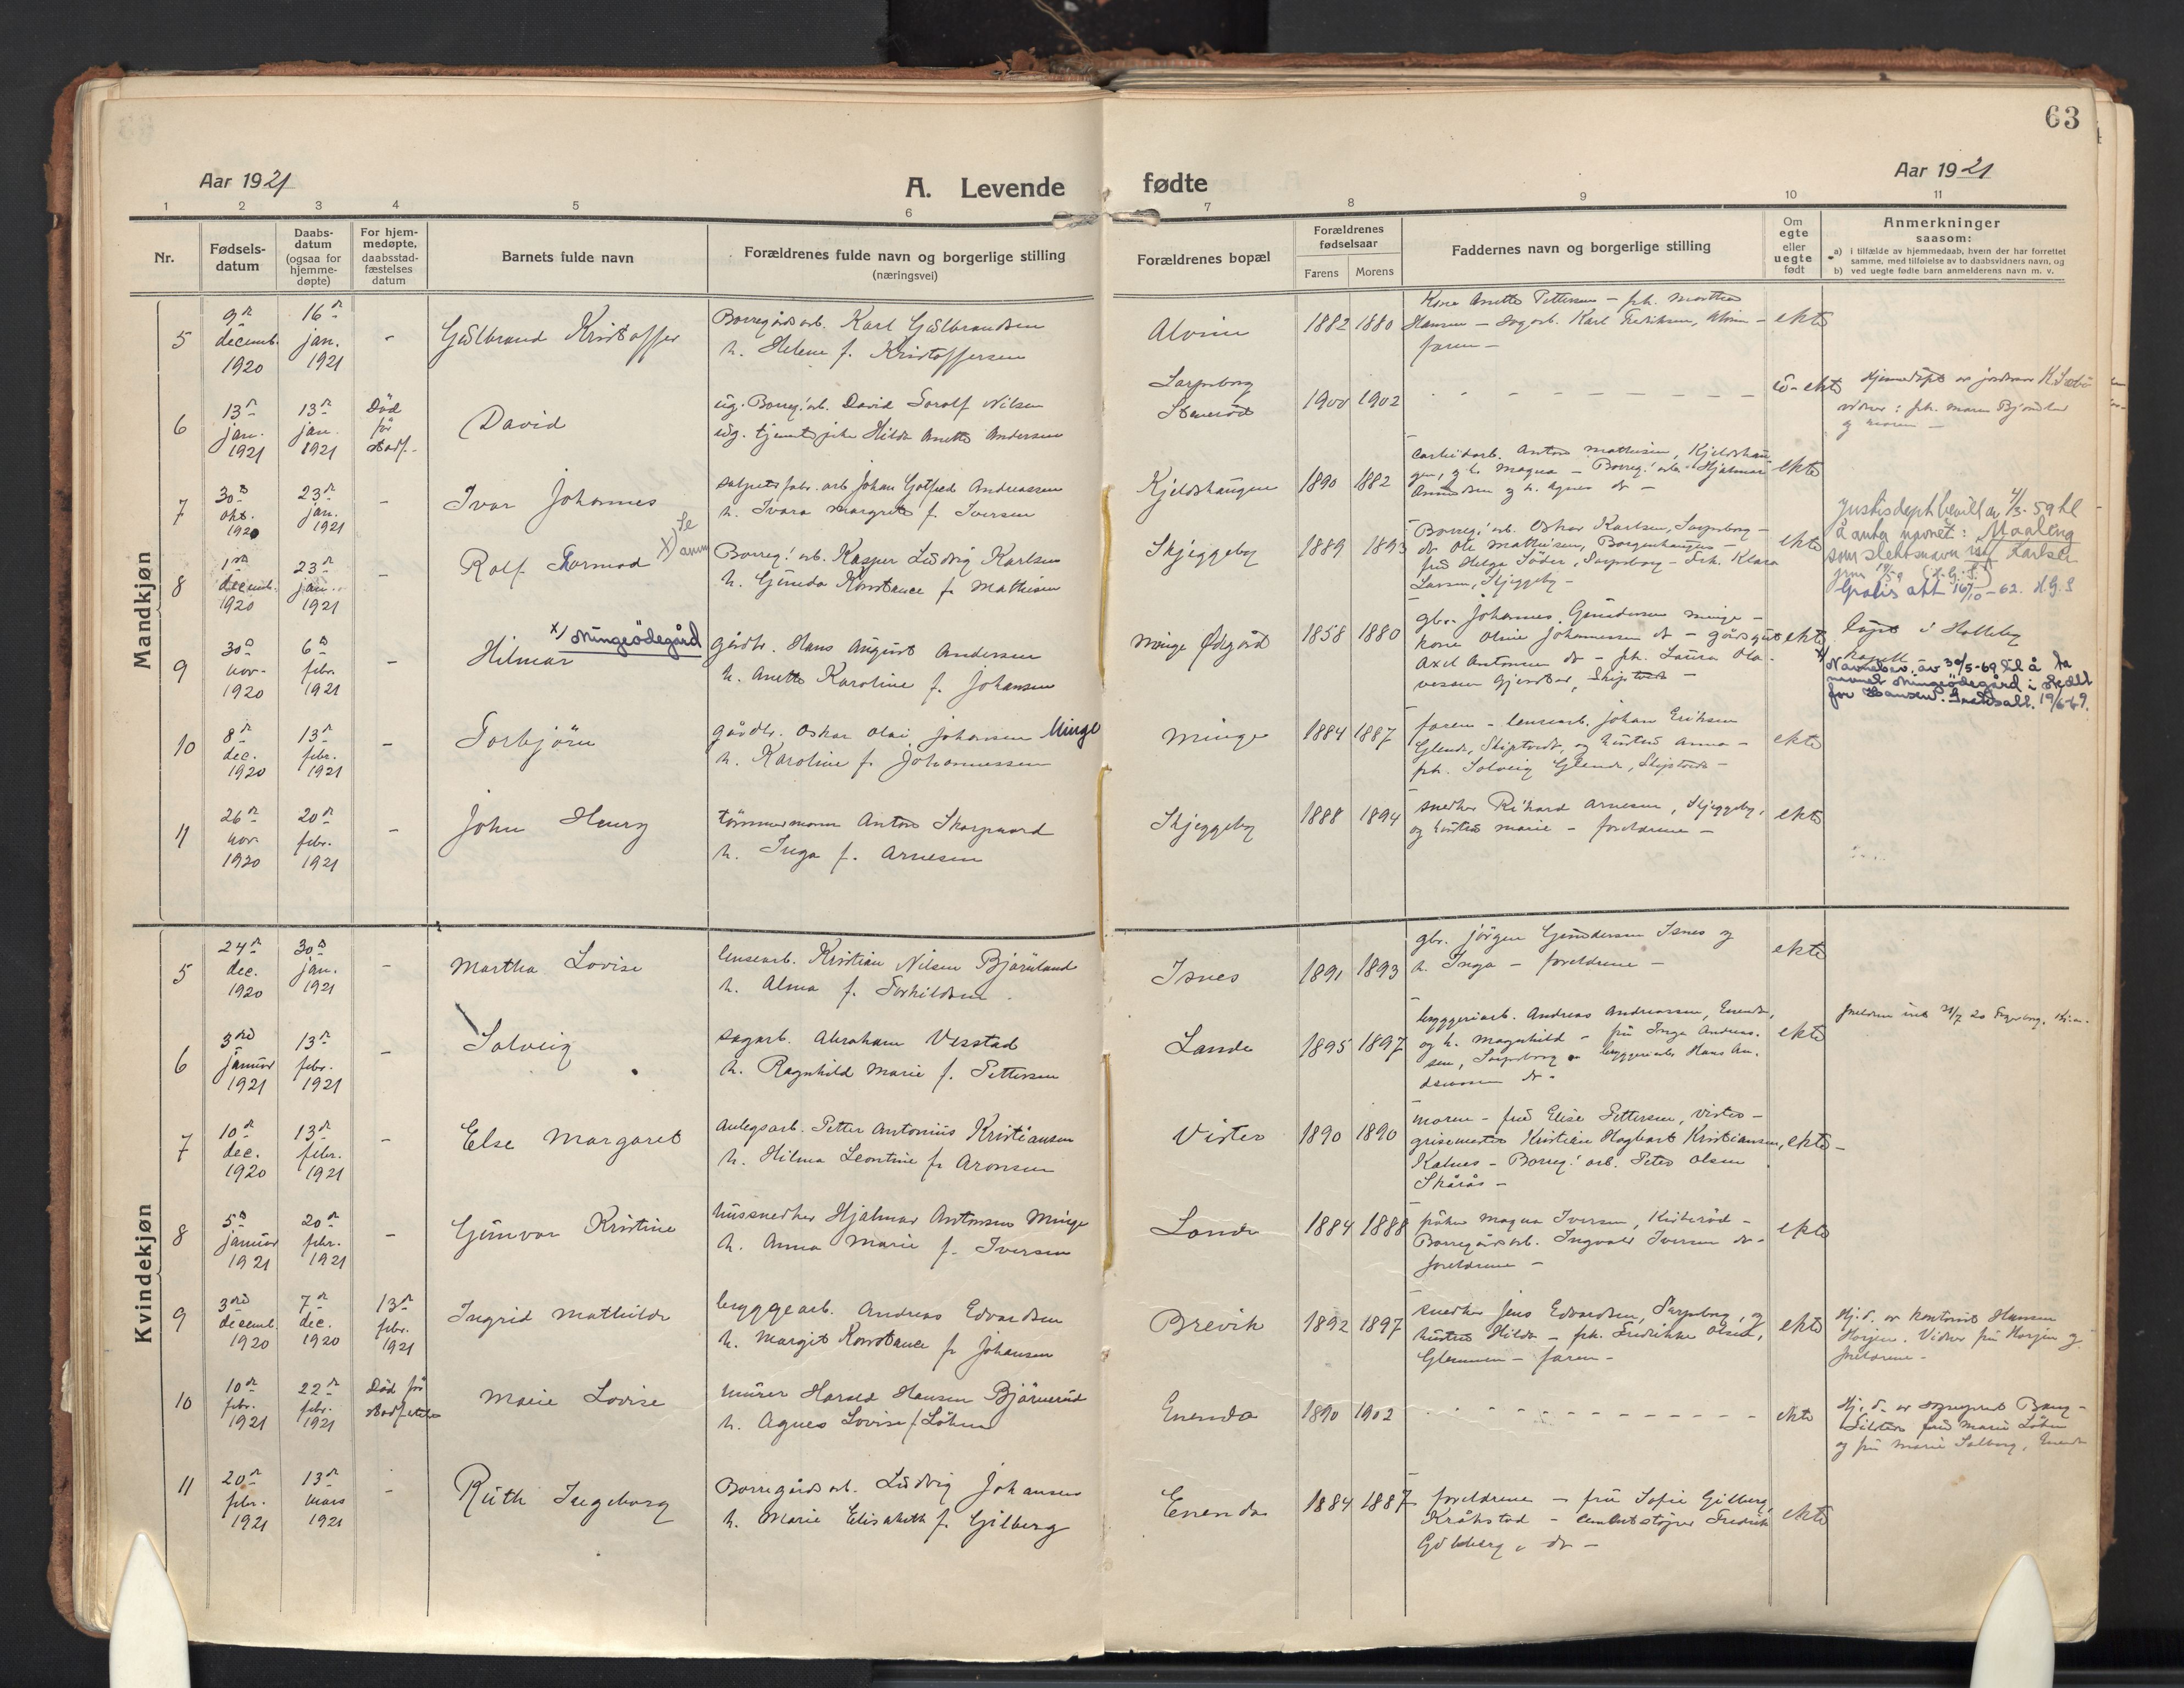 63
Aar 1921
A. Levende fødte
Aar 1921
1 2 3 4 5 6 7 8 9 10 11
Nr.
Fødsels-
datum
Daabs-
datum
(ogsaa for
hjemme-
døpte)
For hjem-
medøpte,
daabsstad-
fæstelses
datum
Barnets fulde navn
Forældrenes fulde navn og borgerlige stilling
(næringsvei)
Forældrenes bopæl
Forældrenes
fødselsaar
Farens Morens
Faddernes navn og borgerlige stilling
Om
egte
eller
uegte
født
Anmerkninger
saasom:
a) i tilfælde av hjemmedaab, hvem der har forrettet
samme, med tilføielse av to daabsvidners navn, og
b) ved uegte fødte barn anmelderens navn m. v.
Mandkjøn
5
9de
decemb.
1920
16de
jan.
1921
-
Gulbrand Kristoffer
Borregårdsarb. Karl Gulbrandsen
h. Helene f. Kristoffersen
Alvim
1882 1880
Kone Anette Pettersen - frk. Martha
Hansen - Karl Fredriksen, Alvim -
faren -
ekte
6
13de
jan.
1921
13de
jan.
1921
Død
før
stadf.
David
ug. Borreg. arb. David Torolf Nilsen
ug. Hilda Anette Andersen
Sarpsborg
1900 1902
u-ekte
Hjemmedøpt av jordmor
vidner: frk. Maren
og moren -
7
30te
okt.
1920
23de
jan.
1921
-
Ivar Johannes
arb. Johan Gotfred Andreassen
h. Ivara Margrete f. Iversen
Kjeldshaugen
1890 1882
carbidarb. Anton Mathisen, Kjeldshau-
gen, og h. Magna - Borreg. arb. Hjalmar
og h. Agnes do -
ekte
8
1ste
decemb.
1920
23de
jan.
1921
-
Rolf Tormod
Borreg. arb. Kasper Ludvig Karlsen
h. Gunda Konstance f. Mathisen
Skjeggeby
1889 1893
Borreg. arb. Oskar Karlsen, Sarpsborg -
do Ole Mathisen, Borgenhaugen -
Helga Söder, Sarpsborg - Frk. Klara
Larsen, Skjeggeby -
ekte
Justisdept. bevill. av 4/3-59 til
å anta navnet: Maaleng
som slektsnavn istf. Karlsen
Gratis att 16/10-62. H.G.S
9
30te
nov.
1920
6te
febr.
1921
-
Hilmar x) Mingeödegård
gårdbr. Hans August Andersen
h. Anette Karoline f. Johansen
Minge Ødegård
1858 1880
gbr. Johannes Gundersen Minge -
kone Oline Johannessen do - gårdsgut
Axel Antonsen do - frk. Laura Ola-
vessen Skiptvedt -
ekte
Døpt i Holleby
kapell
x) Navnebev. av 30/5-69 til å ta
navnet Mingeödegård i stedet
for Hansen. 19/6-69.
10
8de
dec.
1920
13de
febr.
1921
-
Torbjörn
gårdbr. Oskar Olai Johansen Minge
h. Karoline f. Johannessen
Minge
1884 1887
faren - lensearb. Johan Eriksen
Glende, Skiptvedt, og hustru Anna -
frk. Solveig Glende, Skiptvedt -
ekte
11
26de
nov.
1920
20de
febr.
1921
-
John Henry
tömmermann Anton Skorpaard
h. Inga f. Arnesen
Skjeggeby
1888 1894
snedker Rikard Arnesen, Skjeggeby,
og hustru Marie - foreldrene -
ekte
Kvindekjøn
5
24de
dec.
1920
30te
jan.
1921
-
Martha Lovise
lensearb. Kristian Nilsen Bjørnland
h. Alma f. Torkildsen
Isnes
1891 1893
gbr. Jörgen Gundersen Isnes og
h. Inga - foreldrene -
ekte
6
3die
januar
1921
13de
febr.
1921
-
Solveig
sagarb. Abraham Visstad
h. Ragnhild Marie f. Pettersen
Lande
1895 1897
bryggeriarb. Andreas Andreassen, Enenda,
og h. Magnhild - fru Inga Andreas-
sen, Sarpsborg - bryggeriarb. Hans An-
dreassen do -
ekte
7
10de
dec.
1920
13de
febr.
1921
-
Else Margaret
anlegsarb. Petter Antonius Kristiansen
h. Hilma Leontine f. Aronsen
Vister
1890 1890
moren - fru Elise Pettersen, Vister -
grisemester Kristian Hagbart Kristiansen,
Kalnes - Borreg. arb. Peter Olsen
Skårås -
ekte -
8
5te
januar
1921
20de
febr.
1921
-
Gunvor Kristine
hussnedker Hjalmar Antonsen Minge
h. Anna Marie f. Iversen
Lande
1884 1888
frøken Magna Iversen,
Borregårdsarb. Ingvald Iversen do -
foreldrene -
ekte
9
3die
decemb.
1920
7de
dec.
1920
13de
febr.
1921
Ingrid Mathilde
bryggearb. Andreas Edvardsen
h. Margit Konstance f. Johansen
Brevik
1892 1897
snedker Jens Edvardsen, Sarpsborg, og
hustru Hilda - frk. Fredrikke Olsen,
Glemmen - faren -
ekte
Hj. d. av Hansen
Vidner fru og
foreldrene -
10
10de
febr.
1921
22de
febr.
1921
Død før
stadfestelse
Marie Lovise
murer Harald Hansen Bjørnerud
h. Agnes Lovise f. Löken
Enenda
1890 1902
ekte
Hj. d. av sogneprest
fru Marie Löken
og fru Marie Solberg, Enenda
11
20de
febr.
1921
13de
mars
1921
-
Ruth Ingeborg
Borregårdsarb. Ludvig Johansen
h. Marie Elisabeth f. Gilberg
Enenda
1884 1887
foreldrene - fru Sofie Gilberg,
Kråkstad - cementstøper Fredrik
Gilberg, do -
ekte